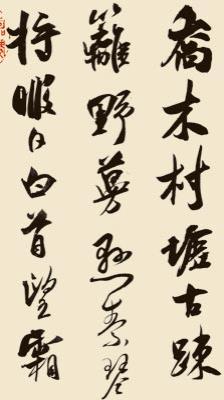 喬木村墟古疎
籬野蔓懸素琴
将暇日白首望霜